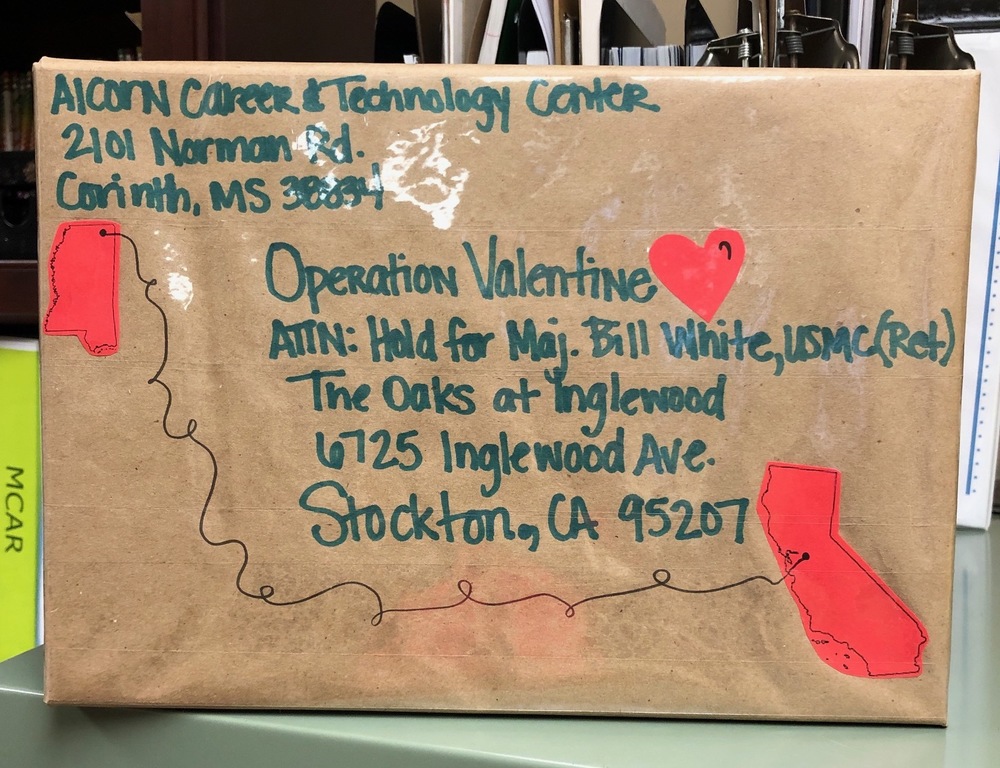 Alcorn Career & Technology Center
2101 Norman Rd.
Corinth, MS 38834
Operation Valentine
ATTN: Hold for Maj. Bill White, USMC (Ret)
The Oaks at Inglewood
6725 Inglewood Ave.
Stockton, CA 95207
MCAR